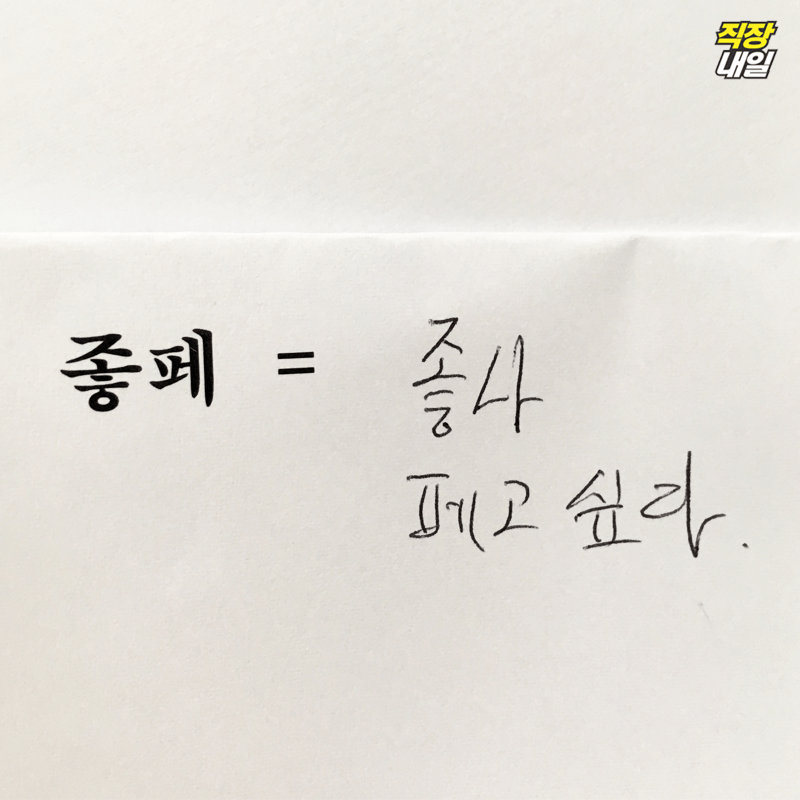 직장
내일
좋페 = 좋사
페고 싶다.